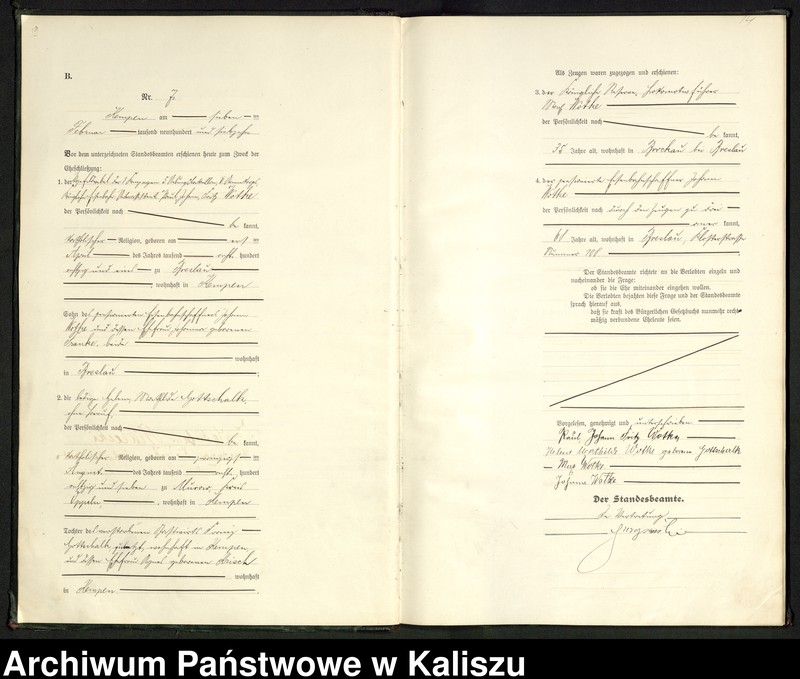 B.
Nr. 7.
Kempen am sieben ten
Februar tausend neunhundert und siebzehn
Vor dem unterzeichneten Standesbeamten erschienen heute zum Zweck der
Eheschließung:
1. der
Paul Johann Fritz Wotke
der Persönlichkeit nach
be kannt,
katholischer Religion, geboren am ersten
April des Jahres tausend acht hundert
achtzig und eins zu Breslau
, wohnhaft in Kempen
Sohn des pensionierten Eisenbahnschaffners Johann
Wotke und dessen Ehefrau Johanna geborenen
Franke, beide
wohnhaft
in Breslau
2. die ledige Helene Mathilde Gottschalk,
ohne Beruf
der Persönlichkeit nach
be kannt,
katholischer Religion, geboren am
August des Jahres tausend acht hundert
achtzig und sieben zu Murow, Kreis
Oppeln, wohnhaft in Kempen
Tochter des verstorbenen Gastwirts
Gottschalk zuletzt, wohnhaft in Kempen,
und dessen Ehefrau Agnes geborenen
wohnhaft
in Kempen
Als Zeugen waren zugezogen und erschienen:
3. der Königliche Lokomotivführer
Max Wotke
der Persönlichkeit nach
be kannt,
35 Jahre alt, wohnhaft in Brockau bei Breslau
4. der pensionierte Eisenbahnschaffner Johann
Wotke
der Persönlichkeit nach durch den Zeugen zu drei
kannt,
Jahre alt, wohnhaft in Breslau, Klosterstrasse
Nummer 101
Der Standesbeamte richtete an die Verlobten einzeln und
nacheinander die Frage:
ob sie die Ehe miteinander eingehen wollen.
Die Verlobten bejahten diese Frage und der Standesbeamte
sprach hierauf aus,
daß sie kraft des Bürgerlichen Gesetzbuchs nunmehr recht-
mäßig verbundene Eheleute seien.
Vorgelesen, genehmigt und unterschrieben
Paul Johann Fritz Wotke
Helene Mathilde Wotke geborene Gottschalk
Max Wotke
Johann Wotke
Der Standesbeamte.
In Vertretung
Archiwum Państwowe w Kaliszu